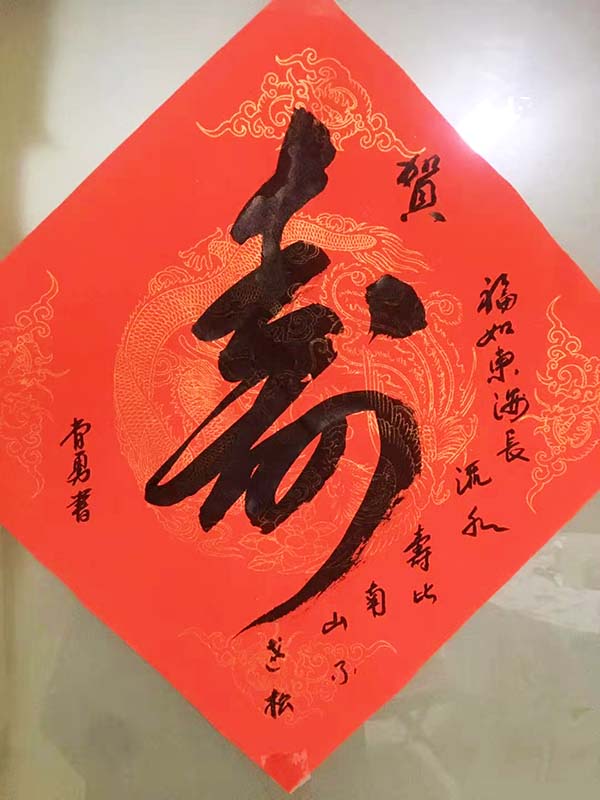 賀
寿
福如東海長
流水
壽比
南
山不
老松
勇書